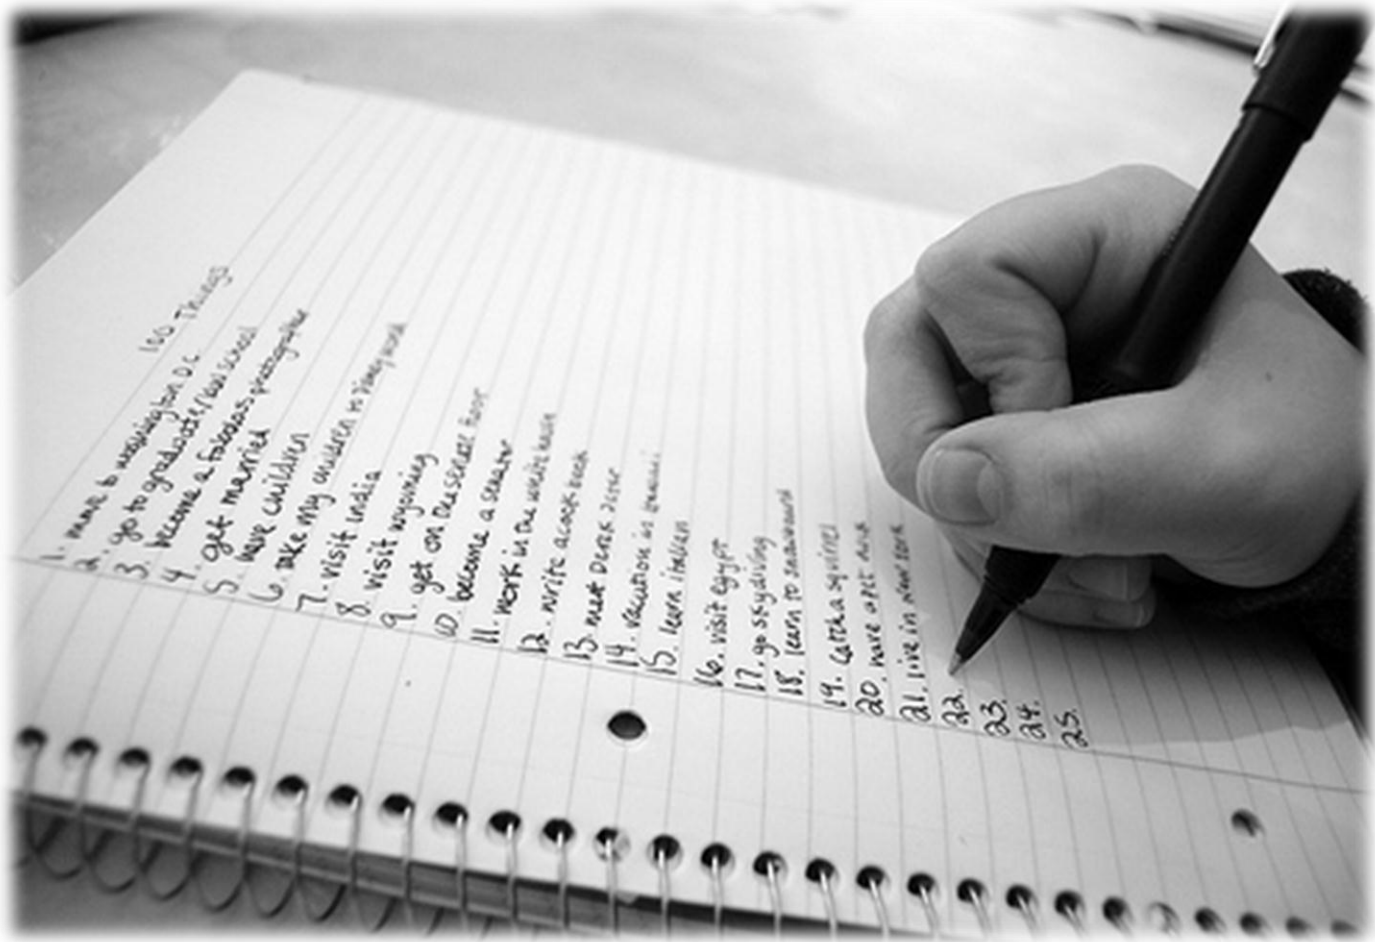 100 Things
1. move to washington D.C.
2. go to graduate/law school
3. become a fabulous photographer
4. get married
5. have children
6. take my children to disney world
7. visit India
8. visit wyoming
9. get on the senate floor
10. become a senator
11. work in the white house
12. write a cook book
13. meet Derek Jeter
14. vacation in hawaii
15. learn italian
16. visit egypt
17. go skydiving
18. learn to snowboard
19. catch a squirrel
20. have a pet
21. live in New York
22.
23.
24.
25.